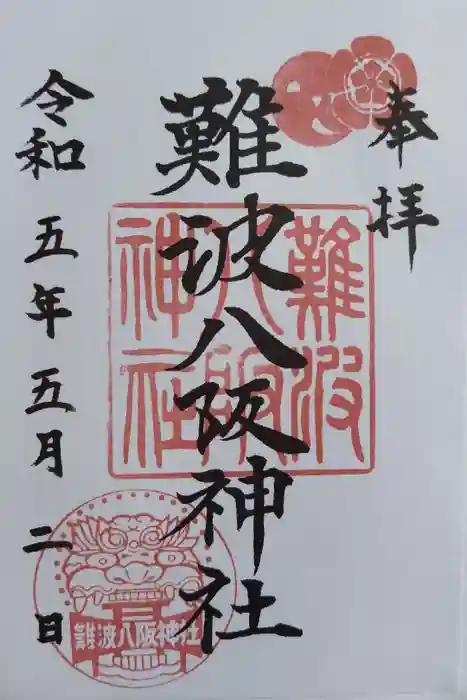 奉拝
難波八阪神社
令和五年五月二日
難波八阪神社
難波八阪神社